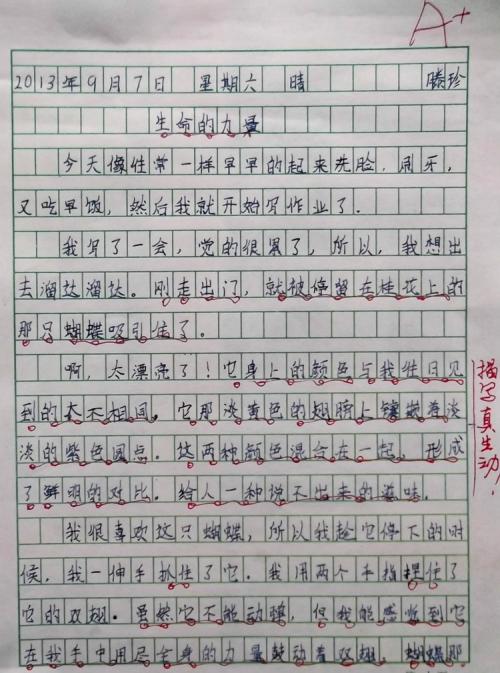 A+
2013年9月7日 星期六 晴 滕珍
生命的力量
今天像往常一样早早的起来洗脸,刷牙,
又吃早饭,然后我就开始写作业了.
我写了一会,觉的很累了,所以,我想出
去溜达溜达。刚走出门,就被停留在桂花上的
那只蝴蝶吸引住了。
啊,太漂亮了!它身上的颜色与我往日见
到的大不相同。它那淡黄色的翅膀上镶嵌着淡
淡的紫色圆点。这两种颜色混合在一起,形成
了鲜明的对比。给人一种说不出来的滋味.
描写真生动.
我很喜欢这只蝴蝶,所以我趁它停下的时
候,我一伸手抓住了它。我用两个手指捏住了
它的双翅。虽然它不能动弹,但我能感觉到它
在我手中用尽全身的力量鼓动着双翅,蝴蝶那